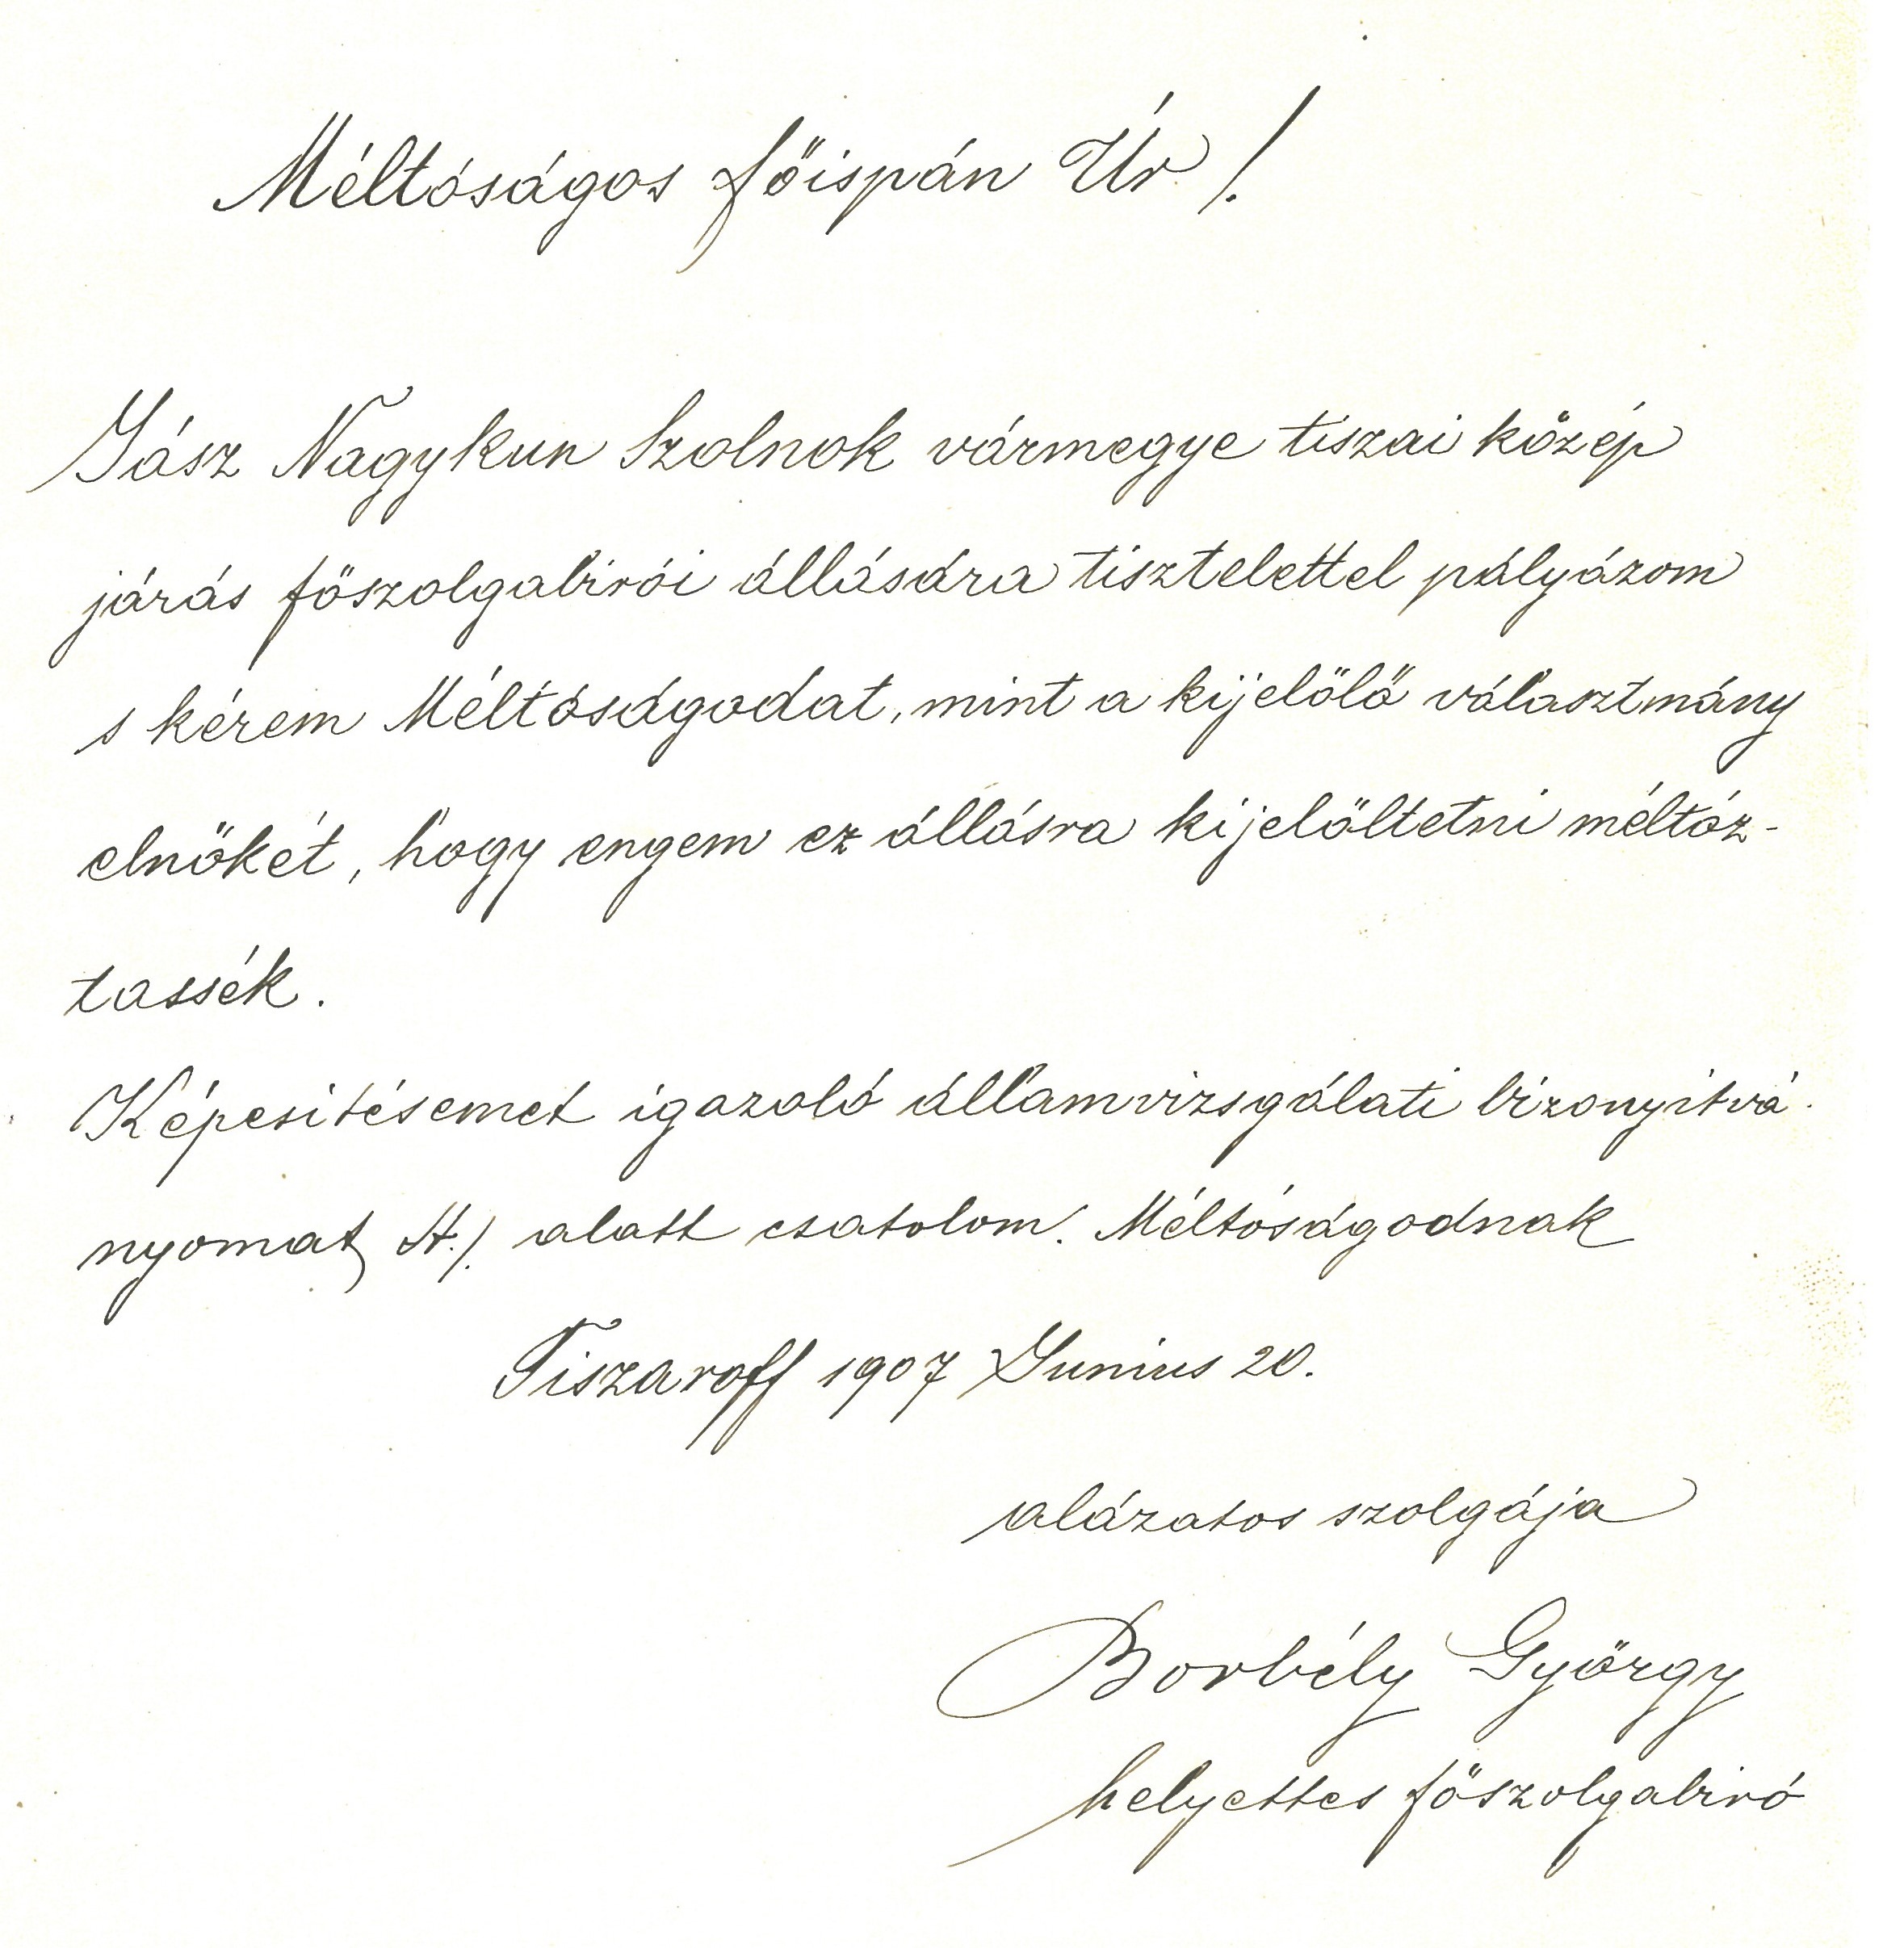 Méltóságos főispán Úr!
Jász Nagykun Szolnok vármegye tiszai közép
járás főszolgabirói állására tisztelettel pályázom
s kérem Méltóságodat, mint a kijelölő választmány
elnökét, hogy engem ez állásra kijelöltetni méltóz-
tassék.
Képesitésemet igazoló államvizsgálati bizonyitvá-
nyomat A./. alatt csatolom. Méltóságodnak
Tiszaroff 1907 Junius 20.
alázatos szolgája
Borbély György
helyettes főszolgabiró